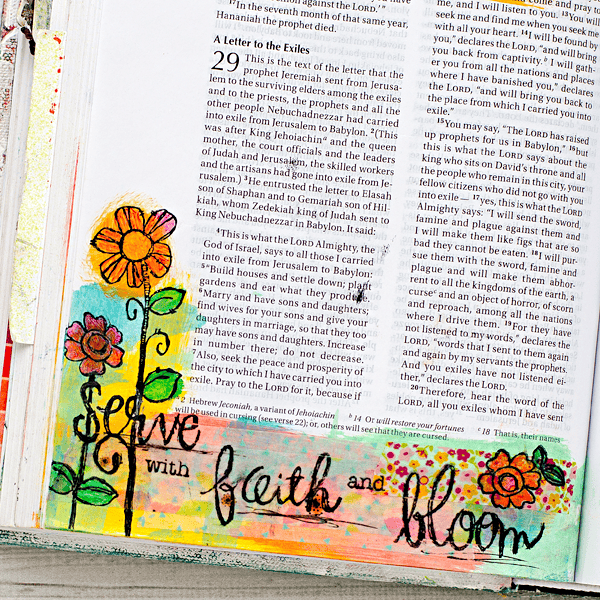 17In the seventh month of that same year,
Hananiah the prophet died.
A Letter to the Exiles
29 This is the text of the letter that the
prophet Jeremiah sent from Jerusa-
lem to the surviving elders among the exiles
and to the priests, the prophets and all the
other people Nebuchadnezzar had carried
into exile from Jerusalem to Babylon. 2(This
was after King Jehoiachin a and the queen
mother, the court officials and the leaders
of Judah and Jerusalem, the skilled workers
and the artisans had gone into exile from Je-
rusalem.) 3He entrusted the letter to Elasah
son of Shaphan and to Gemariah son of Hil-
kiah, whom Zedekiah king of Judah sent to
King Nebuchadnezzar in Babylon. It said:
4This is what the LORD Almighty, the
God of Israel, says to all those I carried
into exile from Jerusalem to Babylon:
5"Build houses and settle down; plant
gardens and eat what they produce.
6Marry and have sons and daughters;
find wives for your sons and give your
daughters in marriage, so that they too
may have sons and daughters. Increase
in number there; do not decrease.
7Also, seek the peace and prosperity of
the city to which I have carried you into
exile. Pray to the LORD for it, because if
me, and I will listen to you. 13You will
seek me and find me when you seek me
with all your heart. 14I will be found by
you," declares the LORD, "and will bring
you back from captivity. b I will gath-
er you from all the nations and places
where I have banished you," declares
the LORD, "and will bring you back to
the place from which I carried you into
exile."
15You may say, "The LORD has raised
up prophets for us in Babylon," 16but
this is what the LORD says about the
king who sits on David's throne and all
the people who remain in this city, your
fellow citizens who did not go with you
into exile— 17yes, this is what the LORD
Almighty says: "I will send the sword,
famine and plague against them and
I will make them like figs that are so
bad they cannot be eaten. 18I will pur-
sue them with the sword, famine and
plague and will make them abhor-
rent to all the kingdoms of the earth, a
curse c and an object of horror, of scorn
and reproach, among all the nations
where I drive them. 19For they have
not listened to my words," declares the
LORD, "words that I sent to them again
and again by my servants the prophets.
And you exiles have not listened ei-
ther," declares the LORD.
20Therefore, hear the word of the
LORD, all you exiles whom I have sent
2 Hebrew Jeconiah, a variant of Jehoiachin b 14 Or will restore your fortunes c 18 That is, their names
will be used in cursing (see verse 22); or, others will see that they are cursed.
Serve
with faith and bloom